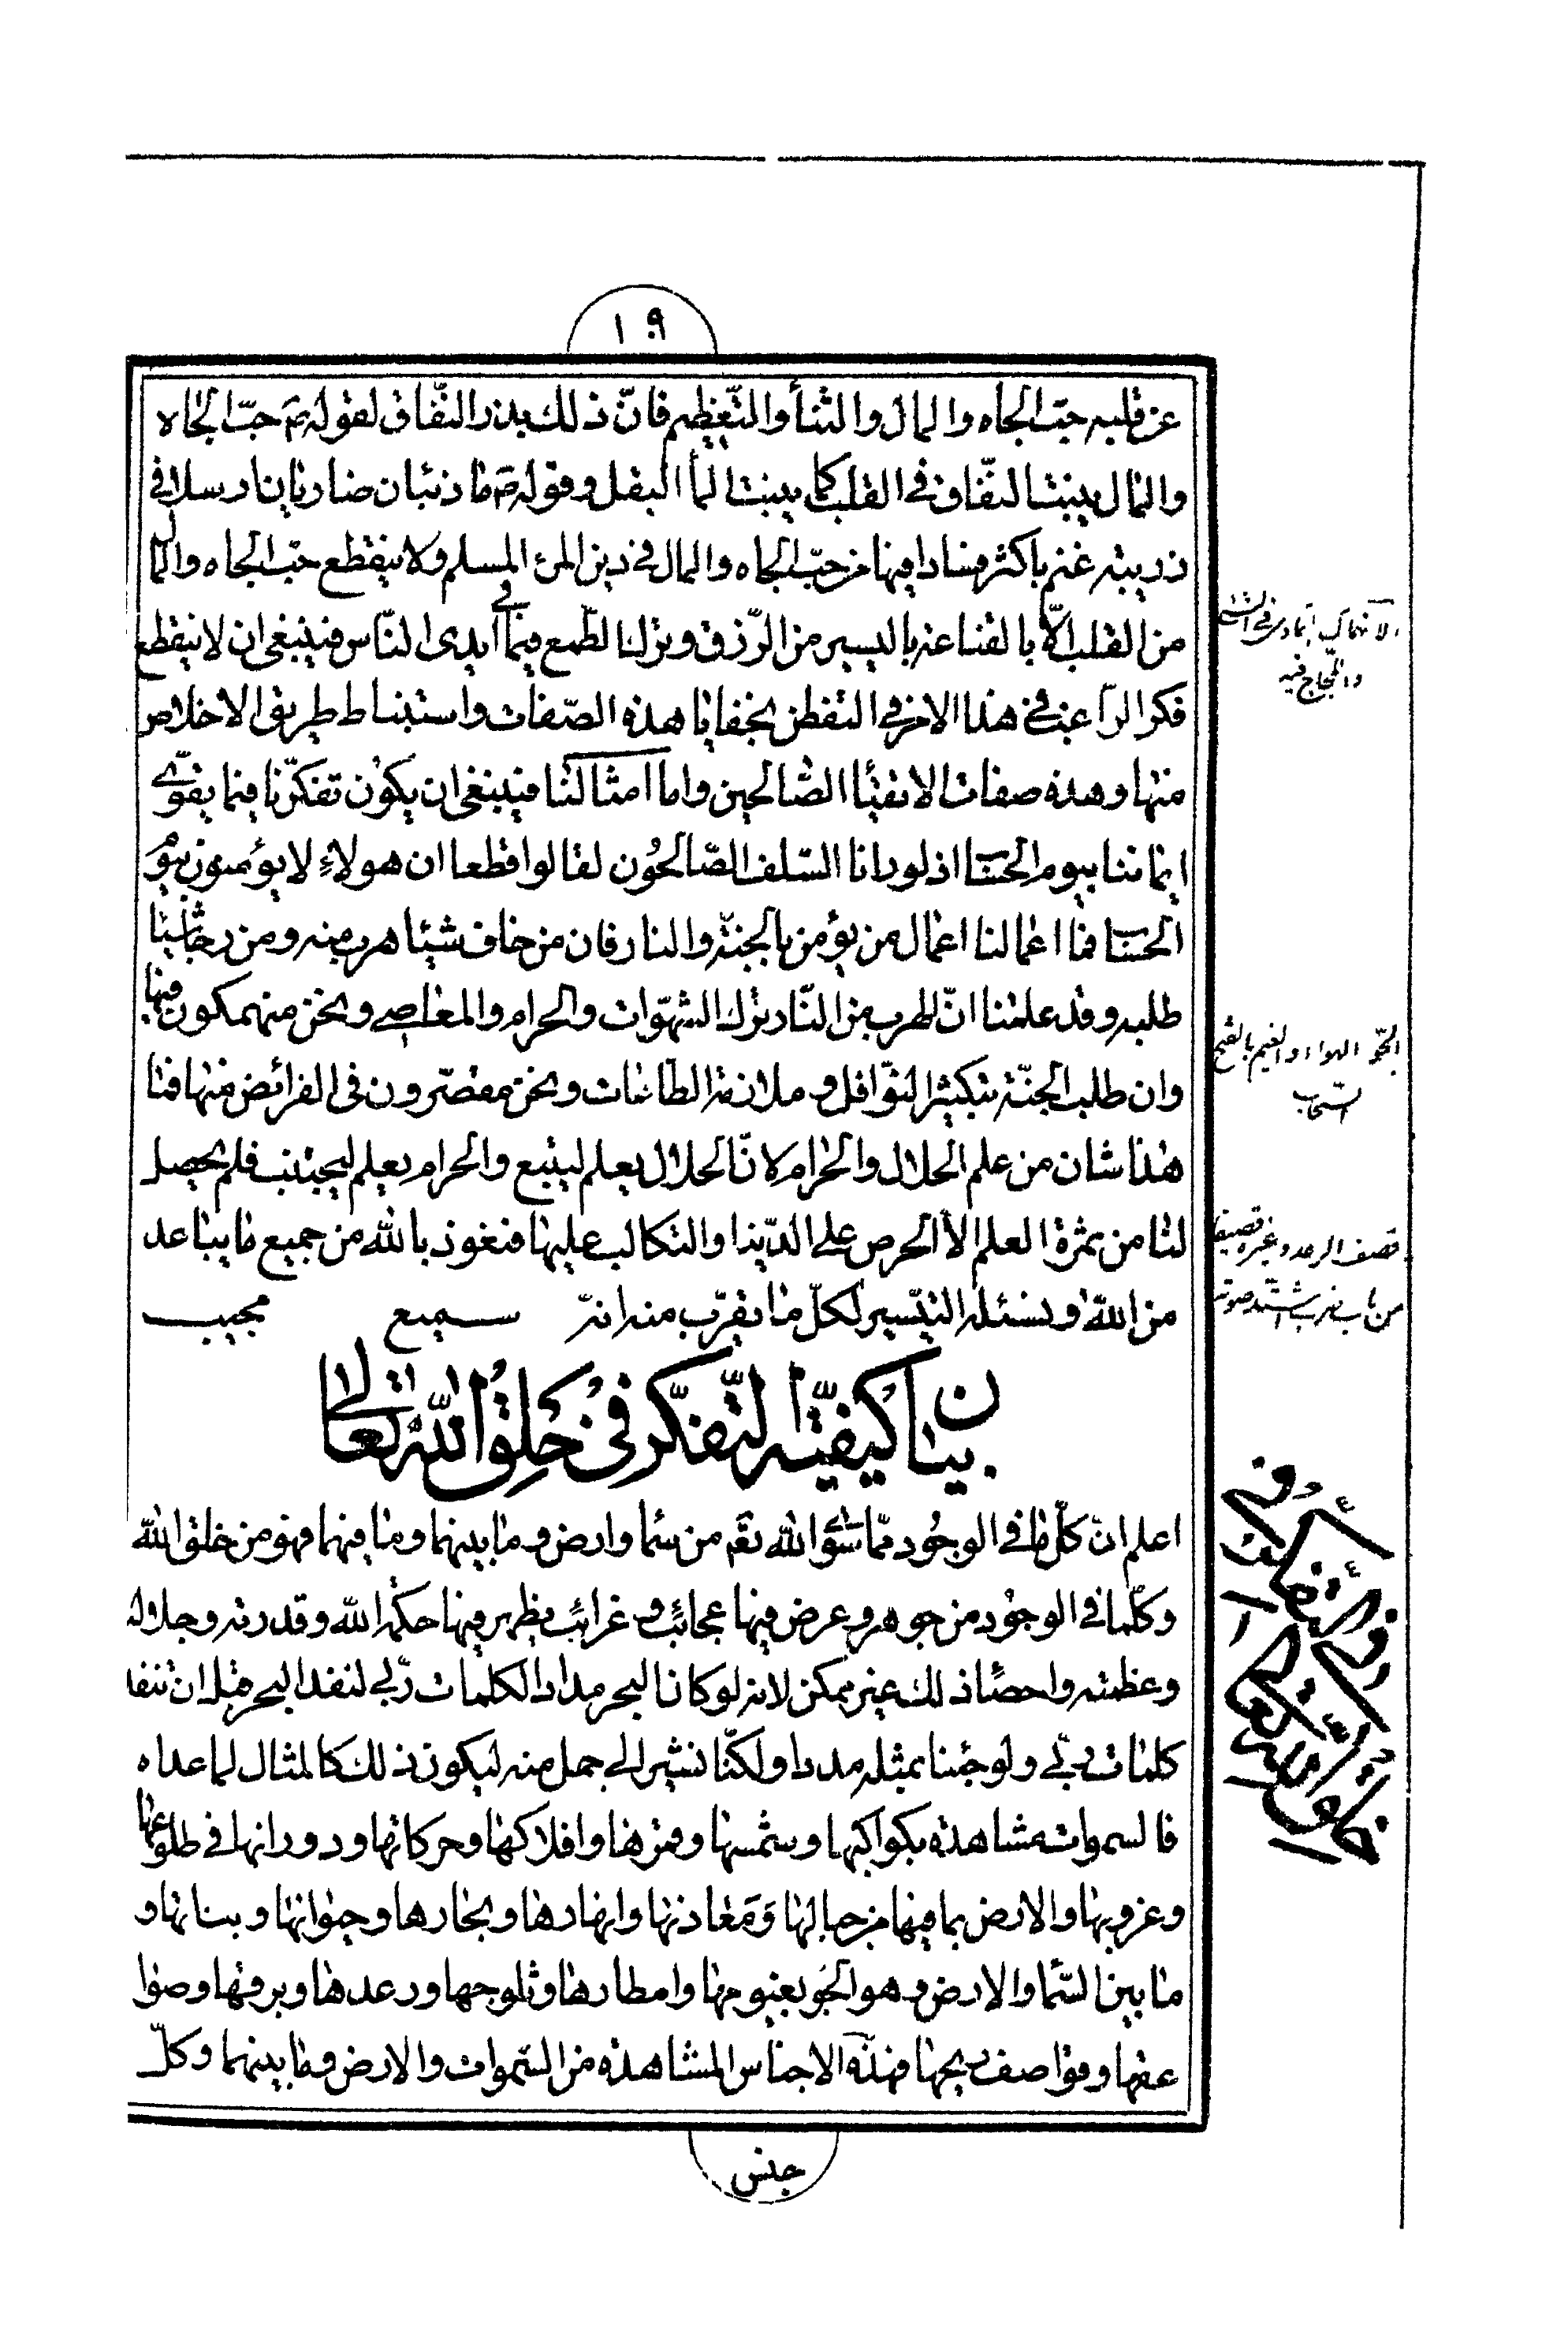 ١٩
عن قلبه حبّ الجاه والمال والثنأ والتّعظيم فانّ ذلك بذر النّفاق لقوله حبّ الجاه
والمال ينبت النّفاق في القلب كما ينبت المأ البقل وقوله ما ذئبان ضاريان ارسلا في
زريبة غنم باكثر فسادا فيها من حبّ الجاه والمال في دين المرء المسلم ولا ينقطع حبّ الجاه والمال
من القلب الّا بالقناعة باليسير من الرّزق وترك الطّمع فيما في ايدى النّاس فينبغى ان لا ينقطع
فكر الراغب في هذا الامر في التفطن بخفايا هذه الصّفات واستنباط طريق الاخلاص
منها وهذه صفات الاتقيأ الصّالحين واما امثالنا فينبغى ان يكون تفكّرنا فيما يقوّي
ايماننا بيوم الحساب اذ لو رانا السّلف الصّالحون لقالوا قطعا ان هولاء لا يؤمنون بيوم
الحساب فما اعمالنا اعمال من يؤمن بالجنّة والنار فان من خاف شيئا هرب منه ومن رجا شيئا
طلبه وقد علمنا انّ الهرب من النّار بترك الشهوات والحرام والمعاصي ونحن منهمكون فيها
وان طلب الجنّة بتكثير النوافل وملازمة الطاعات ونحن مقصّرون في الفرائض منها فما
هذا شان من علم الحلال والحرام لانّ الحلال يعلم ليتبع والحرام يعلم ليجتنب فلم يحصل
لنا من ثمرة العلم الا الحرص على الدّنيا والتكالب عليها فنعوذ بالله من جميع ما يباعد
من الله ونسئله التيسير لكلّ ما يقرّب منه انّه سميع مجيب
بيان كيفيّة التّفكّر في خلق الله تعالى
اعلم انّ كلّ ما في الوجود ممّا سوى الله تعم من سماء وارض وما بينهما وما فيهما فهو من خلق الله
وكلّما في الوجود من جوهر وعرض فيها عجائب وغرائب يظهر فيها حكمة الله وقدرته وجلاله
وعظمته واحصاء ذلك غير ممكن لانه لو كان البحر مدادا لكلمات ربّي لنفد البحر قبل ان تنفد
كلمات ربّي ولو جئنا بمثله مددا ولكنّا نشير الى جمل منه ليكون ذلك كالمثال لما عداه
فالسموات مشاهدة بكواكبها وشمسها وقمرها وافلاكها وحركاتها ودورانها في طلوعها
وغروبها والارض بما فيها من جبالها ومعادنها وانهارها وبحارها وحيوانها ونباتها و
ما بين السّماء والارض وهو الجو بغيومها وامطارها وثلوجها ورعدها وبرقها وصوا
عقها وقواصف ريحها فهذه الاجناس المشاهدة من السّموات والارض وما بينهما وكلّ
جنس
الانهماك التمادى في الشئ
واللجاج فيه
الجوّ الهواء والغيم بالفتح
السّحاب
قصف الرعد وغيره قصيفا
من باب ضرب اشتد صوته